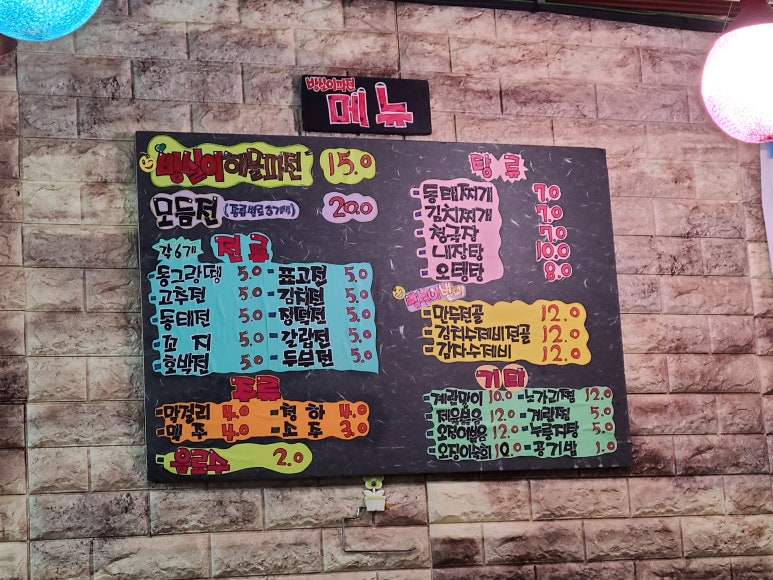 빙실이파전
메뉴
빙실이해물파전 15.0
모듬전 (종류별로 3개씩) 20.0
각6개 전류
동그랑땡 5.0 표고전 5.0
고추전 5.0 김치전 5.0
동태전 5.0 정떡전 5.0
꼬지 5.0 깻잎전 5.0
호박전 5.0 두부전 5.0
주류
막걸리 4.0 천하 4.0
맥주 4.0 소주 3.0
음료수 2.0
탕류
동태찌개 7.0
김치찌개 7.0
청국장 7.0
내장탕 10.0
오뎅탕 8.0
만두전골 12.0
김치수제비전골 12.0
감자수제비 12.0
기타
계란말이 10.0 노가리찜 12.0
제육볶음 12.0 계란찜 5.0
오징어볶음 12.0 누룽지탕 5.0
오징어숙회 12.0 공기밥 1.0